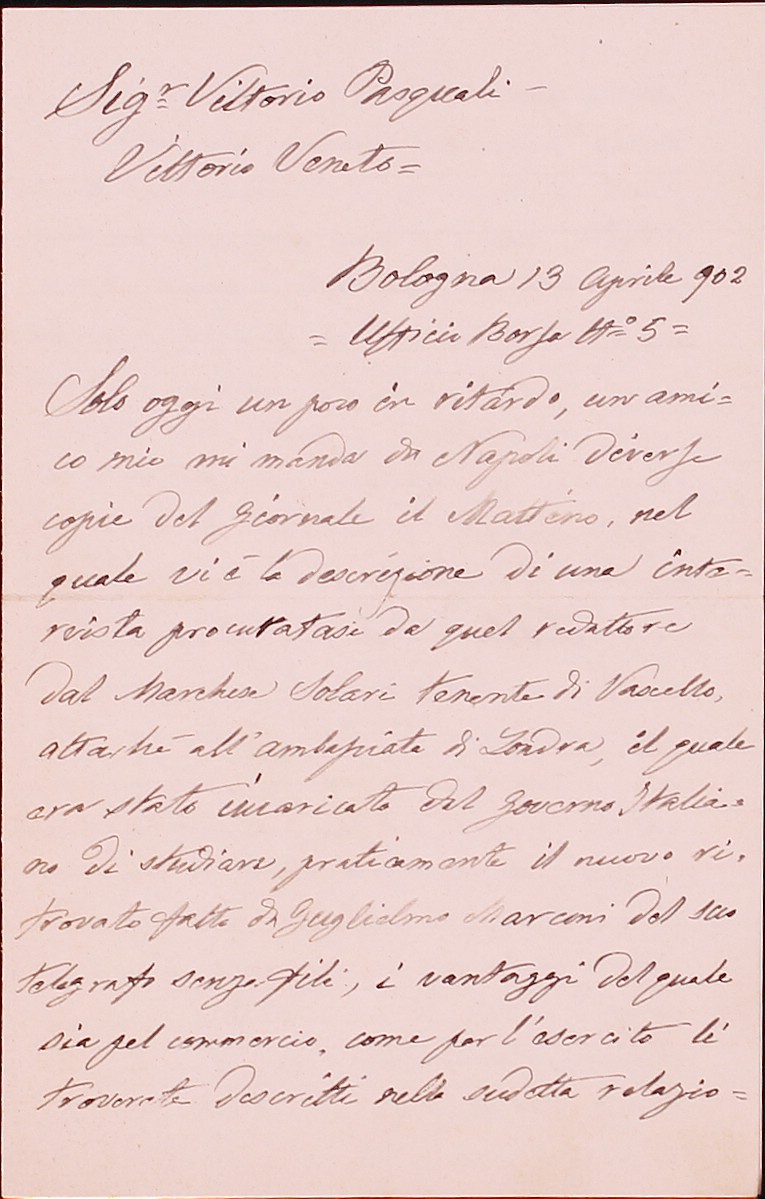 Sigr Vittorio Pasquali -
Vittorio Veneto =
Bologna 13 Aprile 902
= Ufficio Borsa No 5 =
Solo oggi un poco in ritardo, un ami=
co mio mi manda da Napoli diverse
copie del Giornale il Mattino, nel
quale vi è la descrizione di una inte=
rvista procuratasi da quel redattore
dal Marchese Solari tenente di Vascello,
attaché all'ambasciata di Londra, il quale
era stato incaricato dal Governo Italia=
no di studiare, praticamente il nuovo ri=
trovato fatto da Guglielmo Marconi del suo
telegrafo senza fili, i vantaggi del quale
sia pel commercio, come per l'esercito li
troverete descritti nella sudetta relazio=